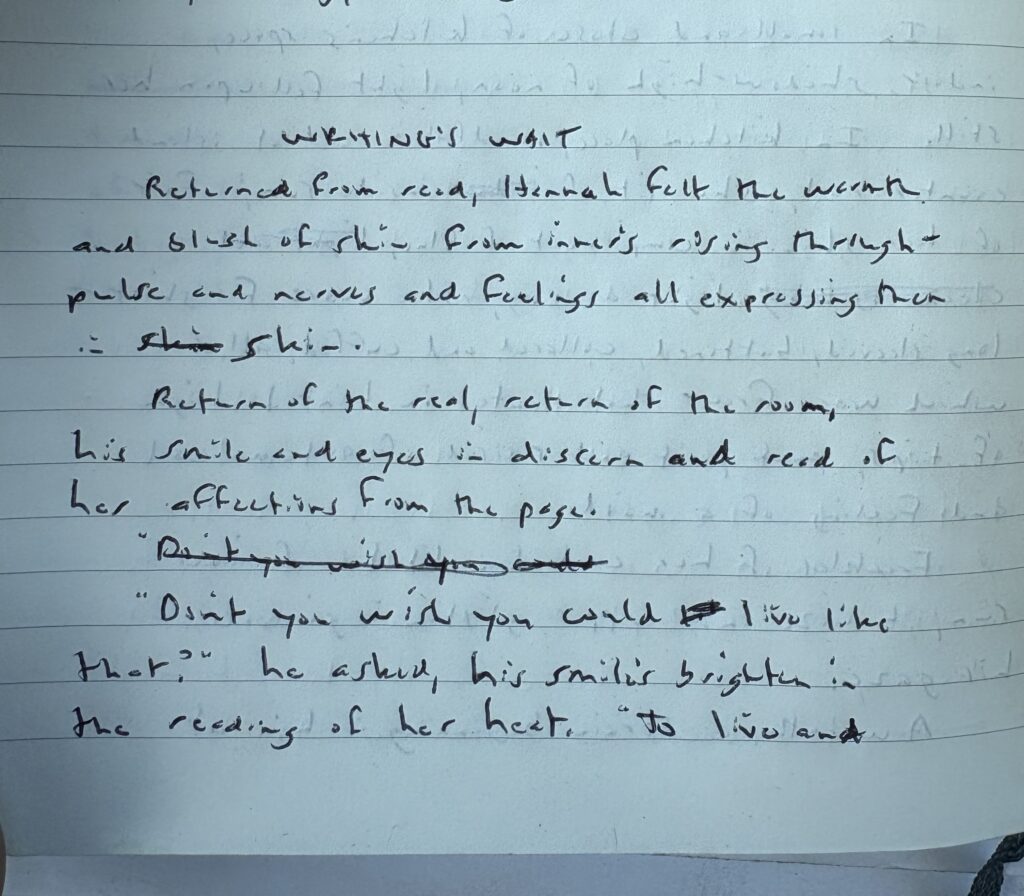 WRITING'S WAIT
Returned from read, Hannah felt the warmth
and blush of skin from inner's rising through
pulse and nerves and feelings all expressing them
in skin skin.
Return of the real, return of the room,
his smile and eyes in discern and read of
her affections from the page.
"Don't you wish you
"Don't you wish you could live like
that?" he asked, his smile's brighten in
the reading of her heat. "To live and